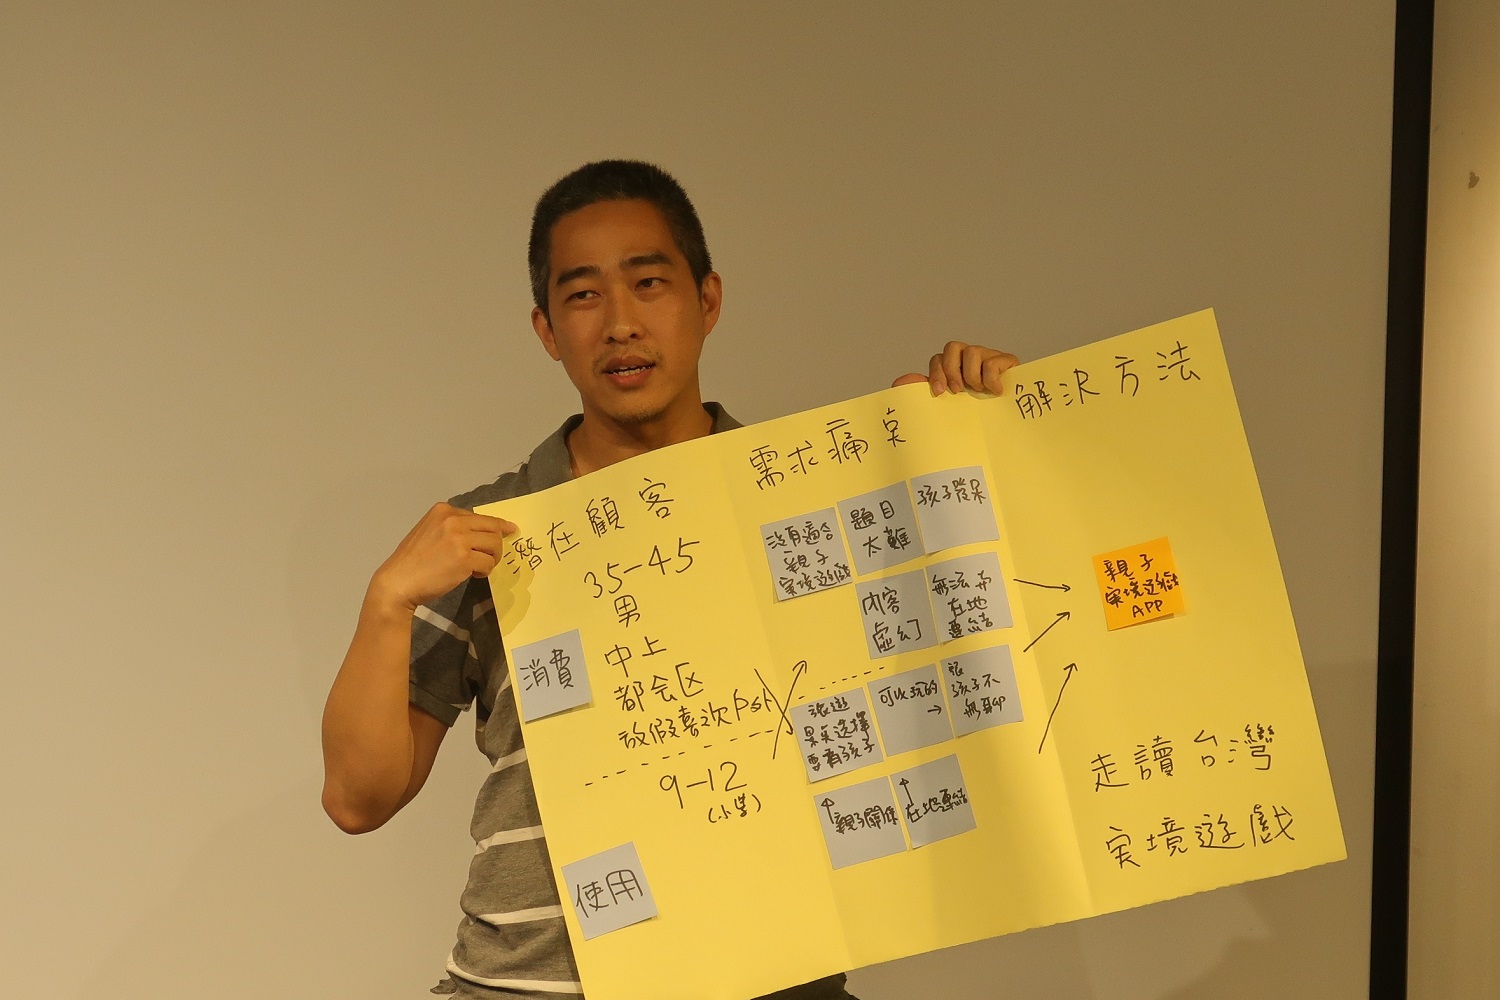 潛在顧客
35-45
男
中上
都会区
放假喜次
消費
9-12
(小学)
使用
需求痛点
没有適合
親子
实境遊戲
題目
太難
孩子發呆
内容
虛幻
無法与
在地
連結
旅遊
景氣选擇
要有孩子
可以玩的
→
孩子不
無聊
↑
親子關係
↑
在地連結
解決方法
親子
实境遊戲
APP
走讀台灣
实境遊戲